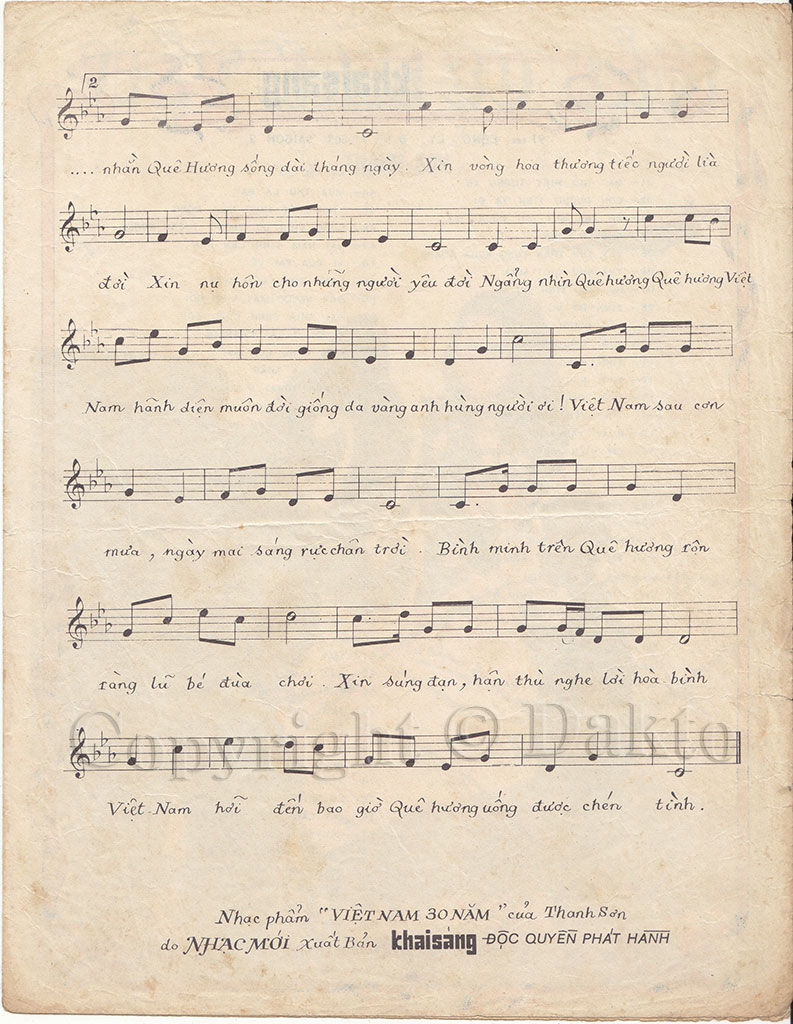 2
.... nhắn Quê Hương sống dài tháng ngày. Xin vòng hoa thương tiếc người lìa
đời Xin nụ hôn cho những người yêu đời Ngẩng nhìn Quê hương Quê hương Việt
Nam hãnh diện muôn đời giống da vàng anh hùng người ơi ! Việt Nam sau cơn
mưa , ngày mai sáng rực chân trời . Bình minh trên Quê hương rộn
ràng lũ bé đùa chơi . Xin súng đạn , hận thù nghe lời hòa bình
Copyright © Dakto
Việt Nam hỡi đến bao giờ Quê hương uống được chén tình .
Nhạc phẩm "VIỆT NAM 30 NĂM" của Thanh Sơn
do NHẠC MỚI Xuất Bản khaisáng ĐỘC QUYỀN PHÁT HÀNH